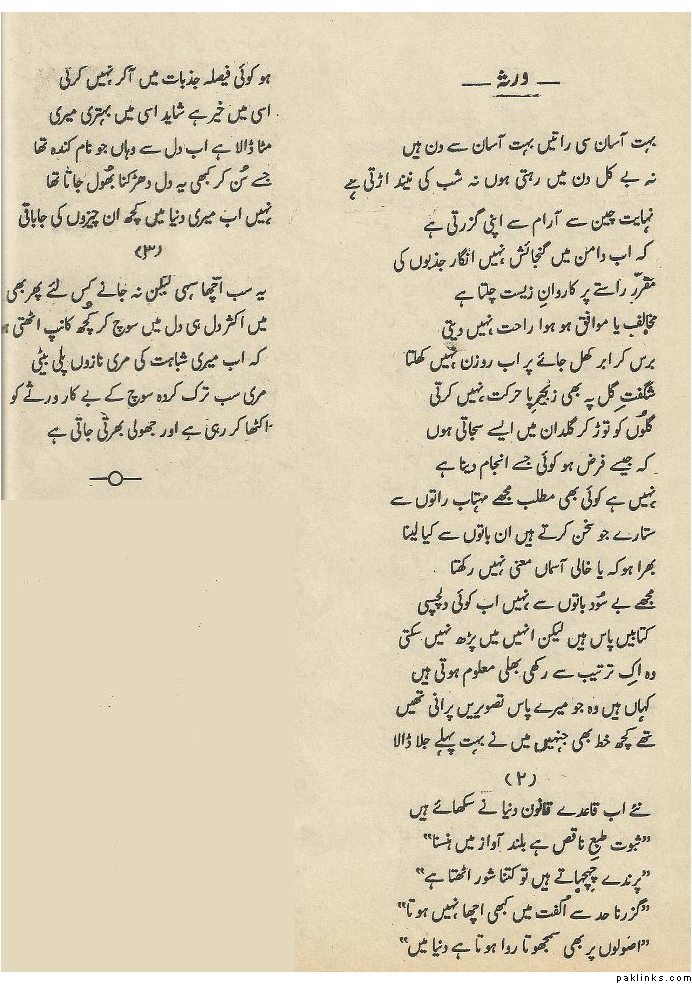 ورثہ
بہت آسان سی راتیں بہت آسان سے دن ہیں
نہ بے کل دن میں رہتی ہوں نہ شب کی نیند اڑتی ہے
نہایت چین سے آرام سے اپنی گزرتی ہے
کہ اب دامن میں گنجائش نہیں انگار جذبوں کی
مقرّر راستے پر کاروانِ زیست چلتا ہے
مخالف یا موافق ہو ہوا راحت نہیں دیتی
برس کر ابر کھل جائے پر اب روزن نہیں کھلتا
شگفتِ گل پہ بھی زنجیرِ پا حرکت نہیں کرتی
گلوں کو توڑ کر گلدان میں ایسے سجاتی ہوں
کہ جیسے فرض ہو کوئی جسے انجام دینا ہے
نہیں ہے کوئی بھی مطلب مجھے مہتاب راتوں سے
ستارے جو سخن کرتے ہیں ان باتوں سے کیا لینا
بھرا ہو کہ یا خالی آسماں معنی نہیں رکھتا
مجھے بے سُود باتوں سے نہیں اب کوئی دلچسپی
کتابیں پاس ہیں لیکن انہیں میں پڑھ نہیں سکتی
وہ اِک ترتیب سے رکھی بھلی معلوم ہوتی ہیں
کہاں ہیں وہ جو میرے پاس تصویریں پرانی تھیں
تھے کچھ خط بھی جنہیں میں نے بہت پہلے جلا ڈالا
(۲)
نئے اب قاعدے قانون دنیا نے سکھائے ہیں
”ثبوت طبعِ ناقص ہے بلند آواز میں ہنسنا“
”پرندے چہچہاتے ہیں تو کتنا شور اٹھتا ہے“
”گزرنا حد سے اُلفت میں کبھی اچھا نہیں ہوتا“
”اصولوں پر بھی سمجھوتا روا ہوتا ہے دنیا میں“
ہو کوئی فیصلہ جذبات میں آ کر نہیں کرتی
اسی میں خیر ہے شاید اسی میں بہتری میری
مٹا ڈالا ہے اب دل سے وہاں جو نام کندہ تھا
جسے سُن کر کبھی یہ دل دھڑکنا بھُول جاتا تھا
نہیں اب میری دنیا میں کچھ ان چیزوں کی جا باقی
(۳)
یہ سب اچھا سہی لیکن نہ جانے کس لئے پھر بھی
میں اکثر دل ہی دل میں سوچ کر کُچھ کانپ اٹھتی
کہ اب میری شباہت کی مری نازوں پلی بیٹی
مری سب ترک کردہ سوچ کے بے کار ورثے کو
اکٹھا کر رہی ہے اور جھولی بھرتی جاتی ہے
paklinks.com